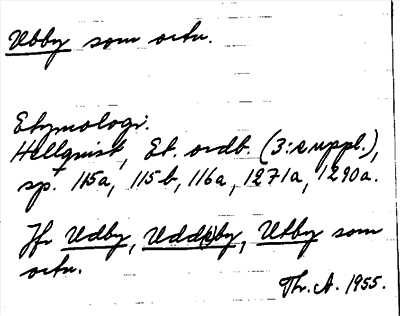 Ubby som ortn.
Etymologi.
Hellquist, Et. ordb. (3:e uppl.),
sp. 115a, 115b, 116a, 1271a, 1290a.
Jfr Udby, Uddeby, Utby som
ortn.
Thr. A. 1955.